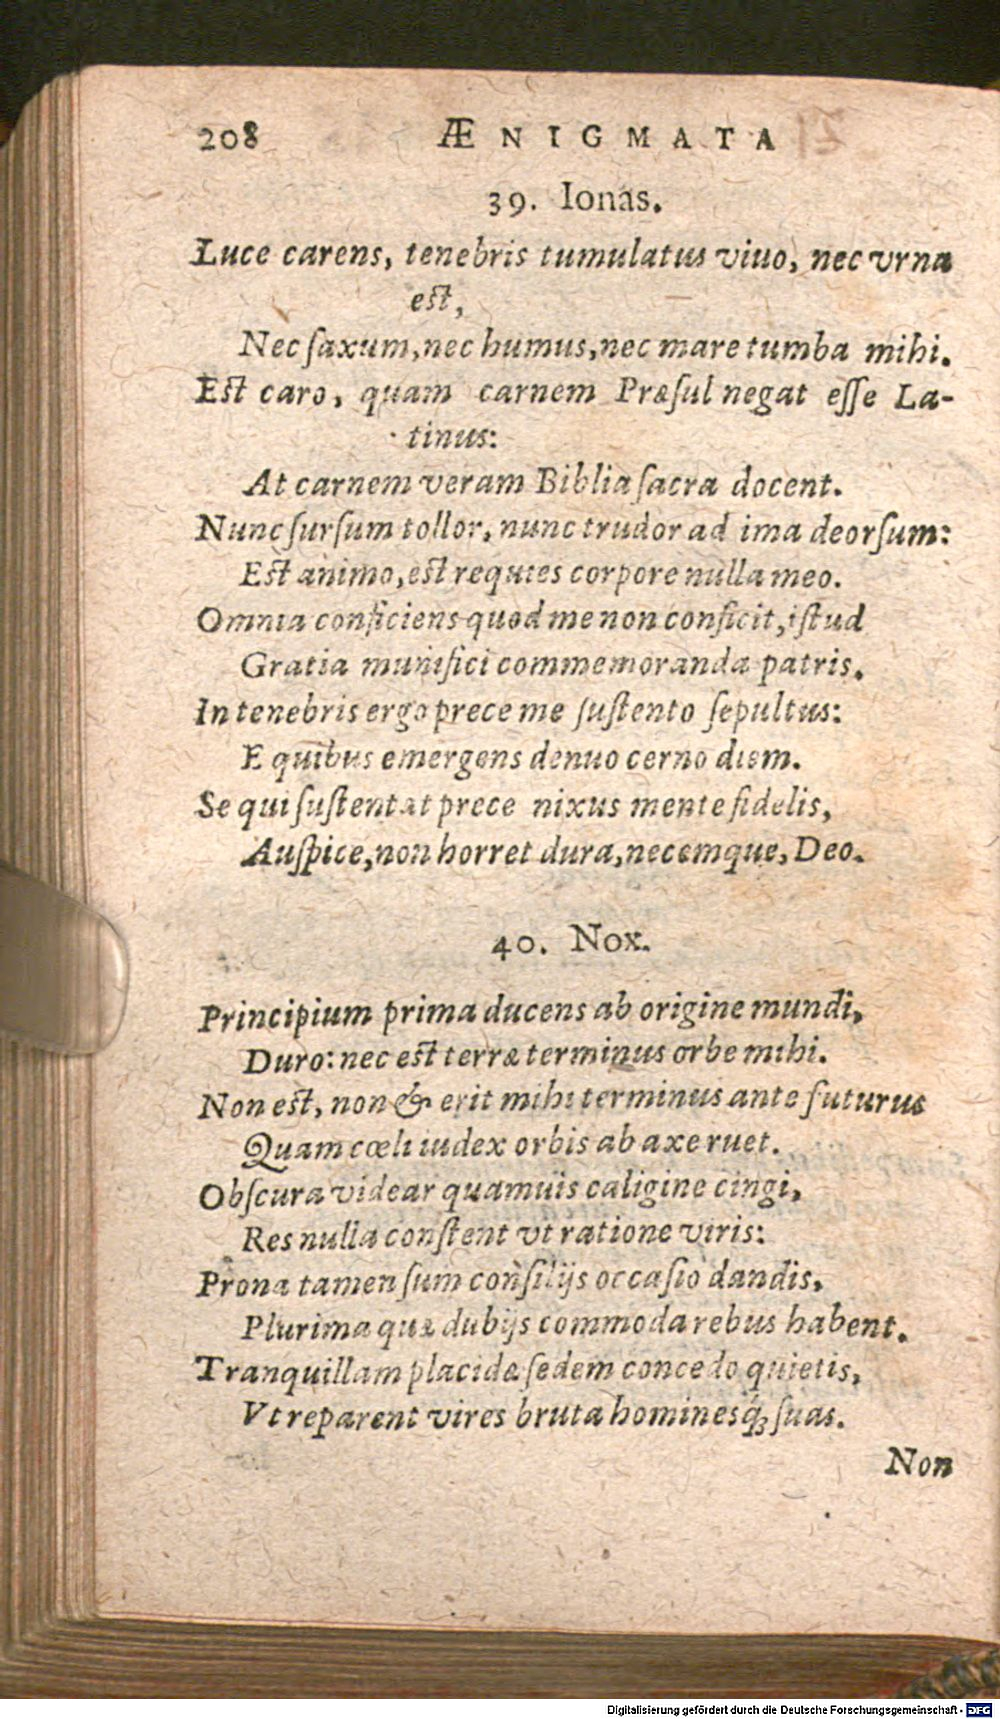 208 ÆNIGMATA
39. Ionas.
Luce carens, tenebris tumulatus viuo, nec vrna
est,
Nec ſaxum, nec humus, nec mare tumba mihi.
Est caro, quam carnem Præſul negat eſſe La-
tinus:
At carnem veram Biblia ſacra docent.
Nunc ſurſum tollor, nunc trudor ad ima deorſum:
Est animo, est requies corpore nulla meo.
Omnia conficiens quod me non conficit, iſtud
Gratia munifici commemoranda patris.
In tenebris ergo prece me ſuſtento ſepultus:
E quibus emergens denuo cerno diem.
Se qui ſuſtentat prece nixus mente fidelis,
Auſpice, non horret dura, necemque, Deo.
40. Nox.
Principium prima ducens ab origine mundi,
Duro: nec est terræ terminus orbe mihi.
Non est, non & erit mihi terminus ante futurus
Quam cœli iudex orbis ab axe ruet.
Obſcura videar quamuis caligine cingi,
Res nulla conſtent vt ratione viris:
Prona tamen ſum conſilijs occaſio dandis,
Plurima quæ dubijs commoda rebus habent.
Tranquillam placidæ ſedem concedo quietis,
Vt reparent vires bruta hominesq́; ſuas.
Non
Digitalisierung gefördert durch die Deutsche Forschungsgemeinschaft - DFG